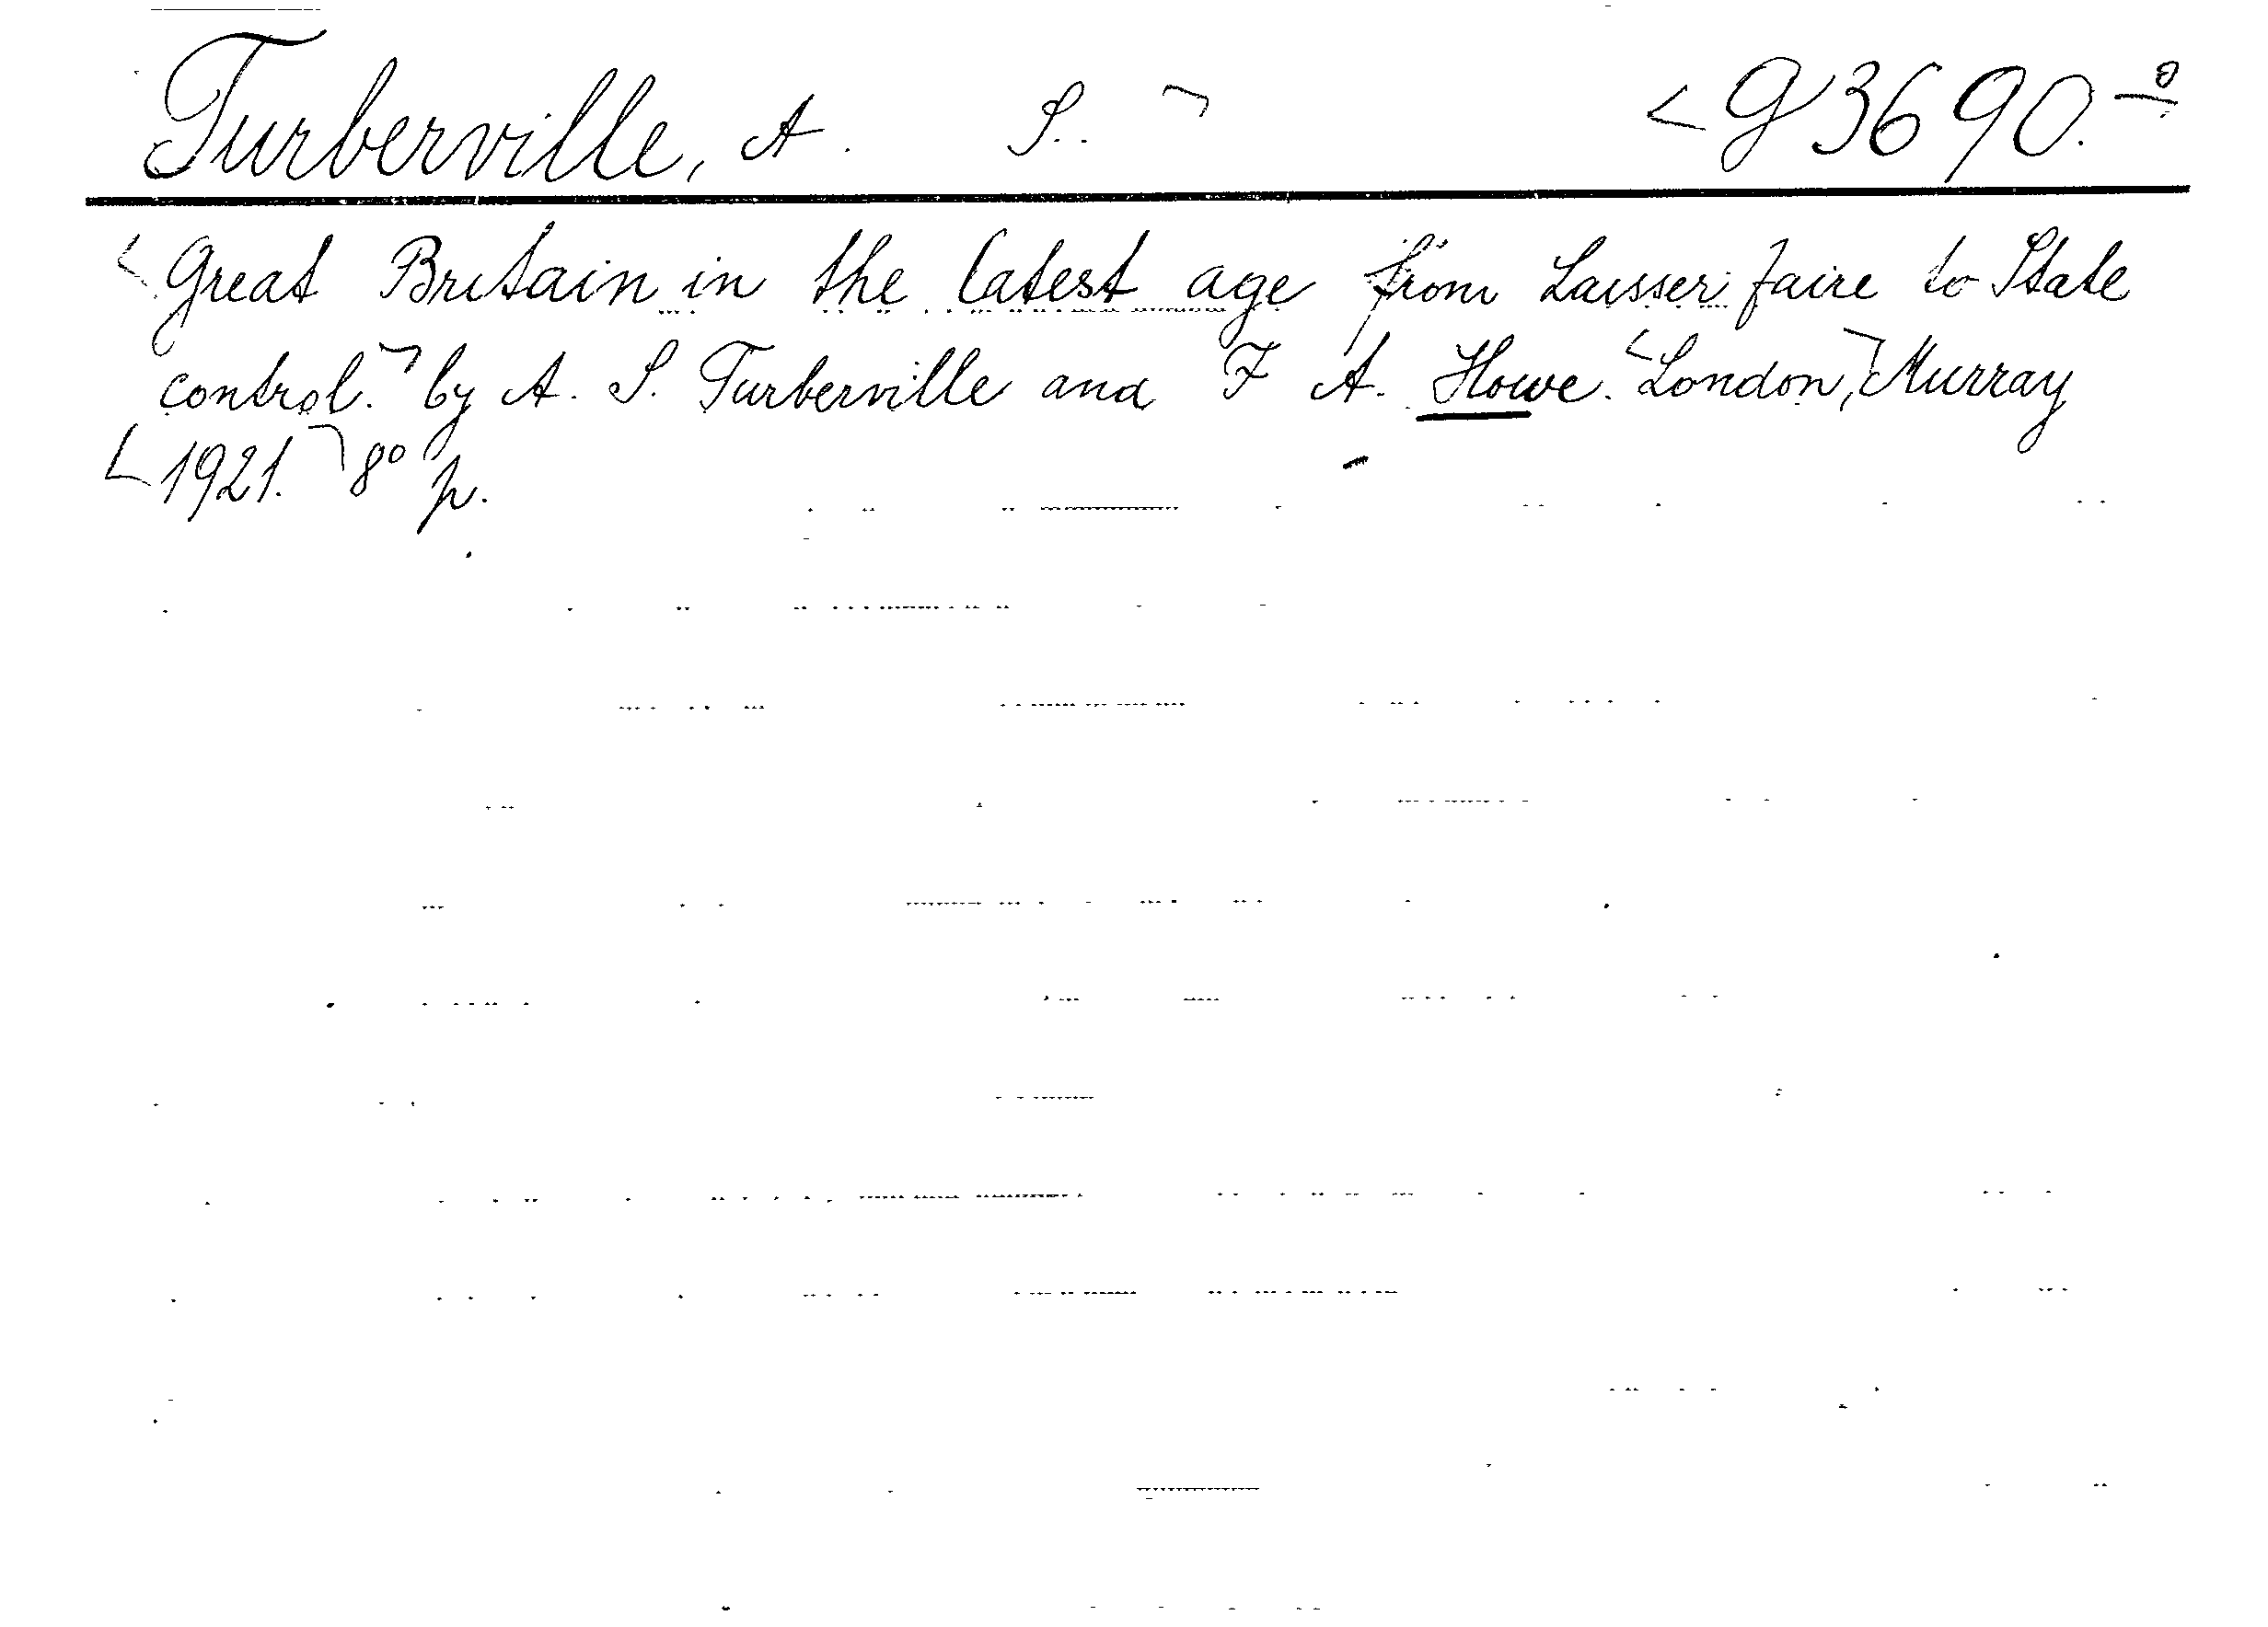 Turberville, A. S. G 3690.-8
Great Britain in the latest age from Laisser faire to State
control. by A. S. Turberville and F A. Howe. London, Murray
1921. 8° p.